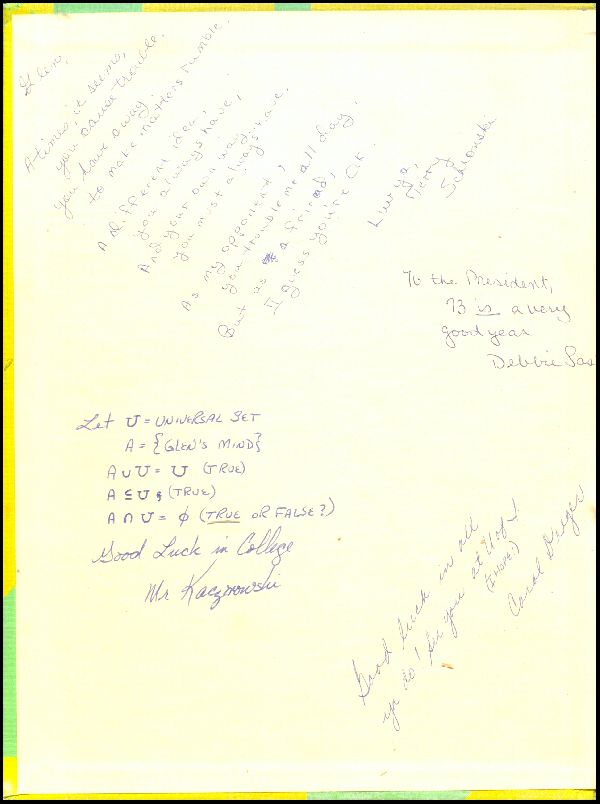 Glen,
A times, it seems,
you cause trouble.
You have a way,
to make matters rumble.
A different idea,
you always have,
And your own way
you must always have.
As my opponent,
you trouble me all day,
But as a friend,
I guess you're O.K.
Luv ya,
Terry
To the President,
73 is a very
good year
Debbie
Let U = UNIVERSAL SET
A = {GLEN'S MIND}
A ∪ U = U (TRUE)
A ⊆ U, (TRUE)
A ∩ U = φ (TRUE OR FALSE?)
Good Luck in College
Mr Kaczmowski
Good luck in all
ya do! See you at U of I.
(I hope.)
Carol